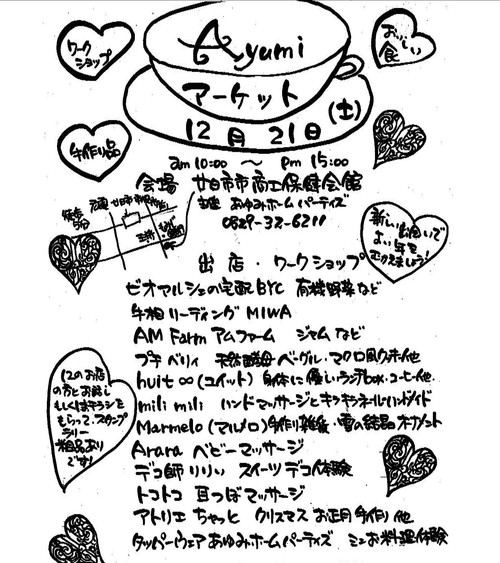 ワーク
ショップ
Ayumi
マーケット
12月21日(土)
おいしい
食
手作り品
am 10:00 ～ pm 15:00
会場 廿日市市商工保健会館
主催 あゆみホームパーティズ
0829-32-6211
徒歩
5分
新しい出会いで
よい年を
むかえましょう!
出店・ワークショップ
ゼオマルシェの宅配BYC 有機野菜など
手相リーディング MIWA
AM Farm アムファーム ジャムなど
プチベリィ 天然酵母ベーグル・マクロ風クッキー他
huit∞(ユイット) 身体に優しいランチbox・コーヒー他.
mili mili ハンドマッサージとキラキラネールハンドメイド
Marmelo (マルメロ)手作り雑貨・雪の結晶オーナメント
Arara ベビーマッサージ
デコ師りりぃ スイーツデコ体験
トコトコ 耳つぼマッサージ
アトリエちゃっと クリスマスお正月手作り他
タッパーウェアあゆみホームパーティズ ミニお料理体験
12のお店
の方とお話し
もしくはチラシを
もらって、スタンプ
ラリー
粗品あり
です!